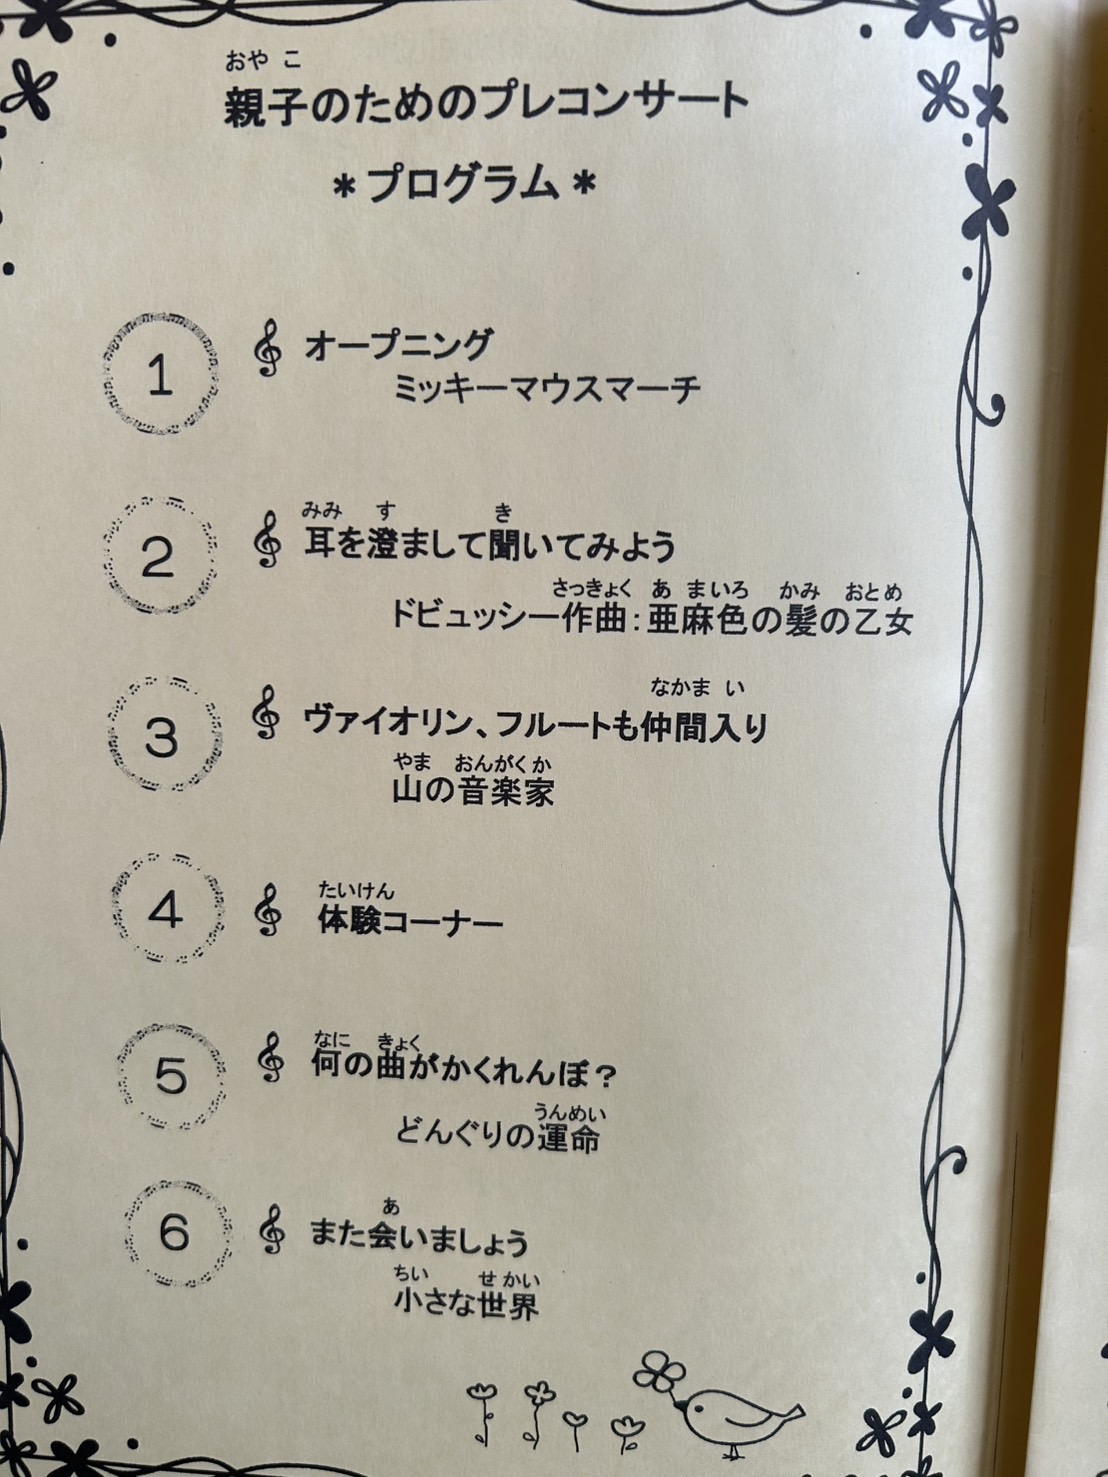 おやこ
親子のためのプレコンサート
＊プログラム＊
1 オープニング
ミッキーマウスマーチ
みみ す き
2 耳を澄まして聞いてみよう
さっきょく あ まいろ かみ おとめ
ドビュッシー作曲：亜麻色の髪の乙女
なかま い
3 ヴァイオリン、フルートも仲間入り
やま おんがくか
山の音楽家
たいけん
4 体験コーナー
なに きょく
5 何の曲がかくれんぼ？
うんめい
どんぐりの運命
あ
6 また会いましょう
ちい せかい
小さな世界